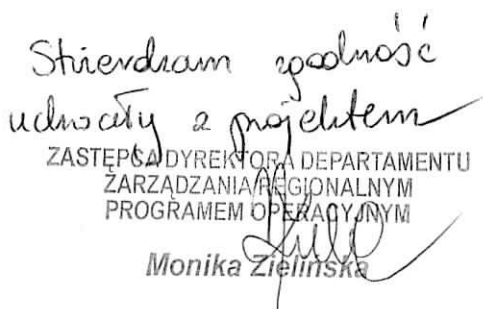 Stwierdzam zgodność
uchwały z projektem
ZASTĘPCA DYREKTORA DEPARTAMENTU
ZARZĄDZANIA REGIONALNYM
PROGRAMEM OPERACYJNYM
Monika Zielińska